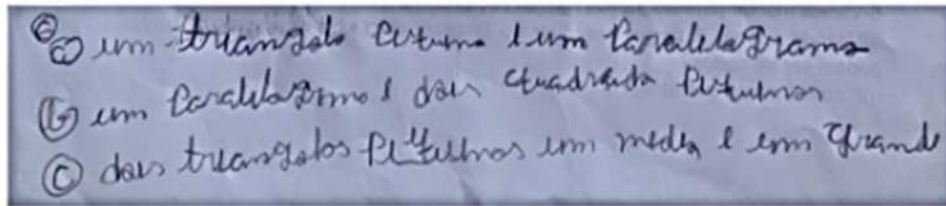 a um triangolo Pequeno e um Paralelograma
b um Paralelogramo e dois quadrado Pequenos
C dois triangolos Pequenos um media e um grande